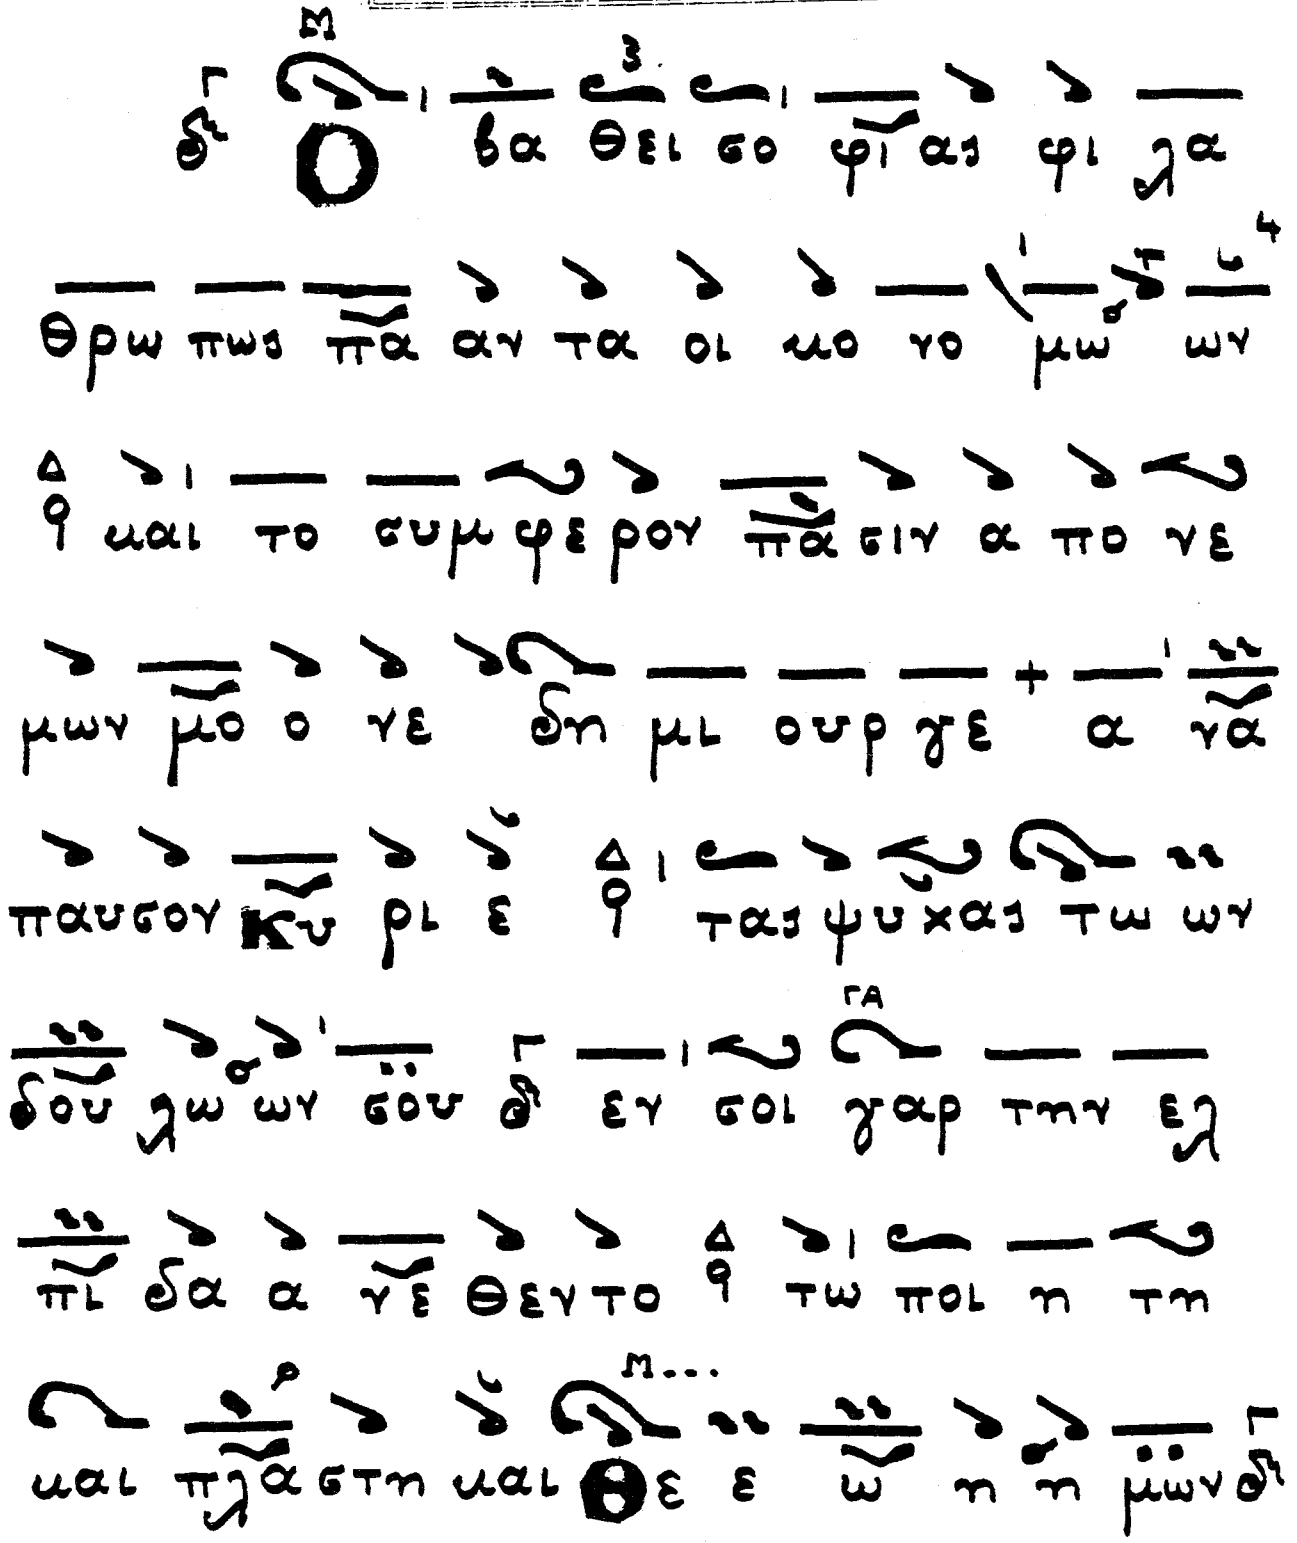 Μ
Ο βα θει σο φι ας φι λα
θρω πως πα αν τα οι κο νο μω ων
και το συμ φε ρον πα σιν α πο νε
μων μο ο νε δη μι ουρ γε α να
παυσον Κυ ρι ε τας ψυ χας τω ων
δου λω ων σου εν σοι γαρ την ελ
πι δα α νε θεντο τω ποι η τη
και πλα στη και Θε ε ω η η μων